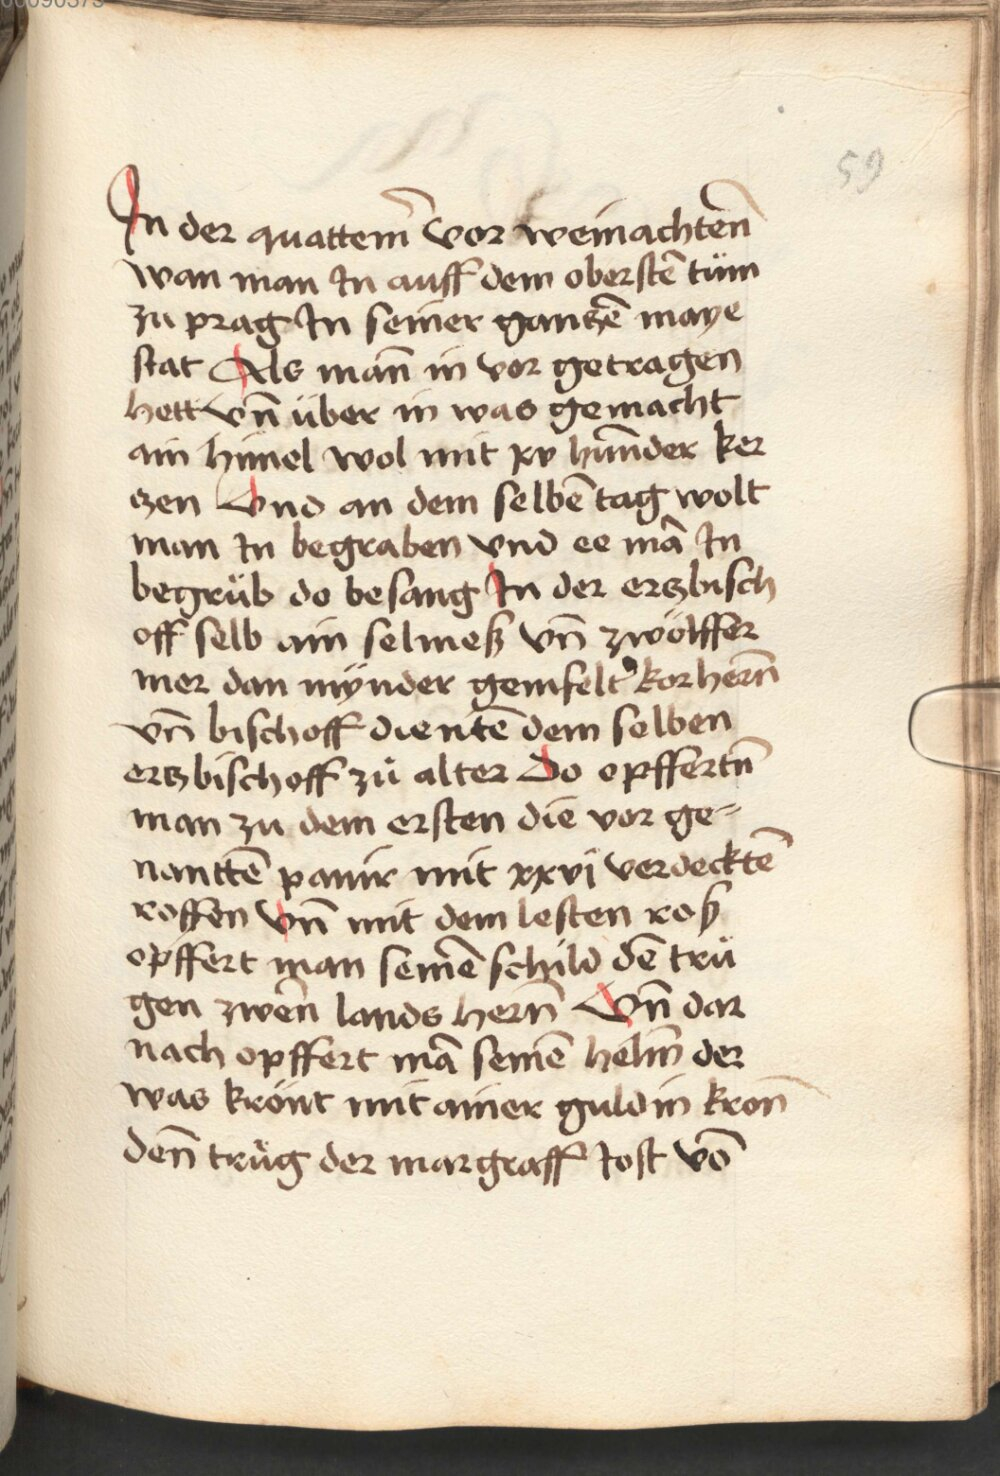 00090373
59
In der quattem̄ vor weinachten̄
wan man In auff dem obersten̄ tüm
zu prag In seiner gantzen̄ maye
stat Als man̄ in vor getragen
hett vn̄ über in was gemacht
ain himel wol mit xv hun̄der ker
tzen Vnd an dem selben̄ tag wolt
man In begraben vnd ee mā In
begrüb do besang In der ertzbisch
off selb ain selmeß vn̄ zwölffer
mer dan mÿnder gemfelt korhern̄
vn̄ bischoff dienten̄ dem selben
ertzbischoff zů alter Do opffertn̄
man zu dem ersten die vor ge-
nantten̄ panir mit xxvi verdeckten̄
rossen Vn̄ mit dem lesten roß
opffert man seinen̄ schild den̄ trü
gen zwen̄ lands hern̄ Vn̄ dar
nach opffert mā seinen̄ helm̄ der
was krönt mit ainer guldin kron̄
den̄ trüg der margraff Jost vō